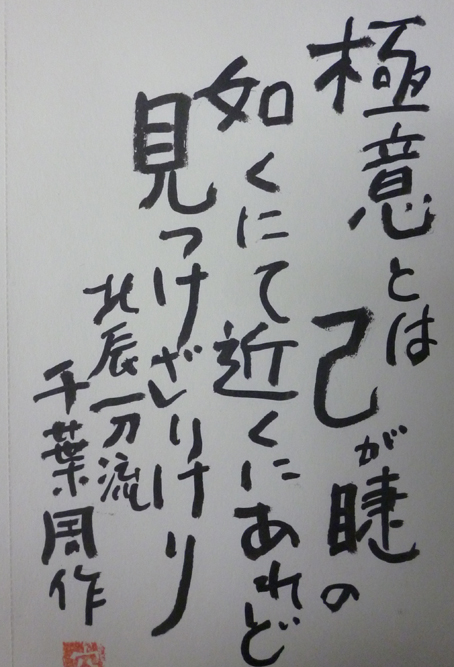 極意とは
己が睫の
如くにて近くにあれど
見つけざりけり
北辰一刀流
千葉周作